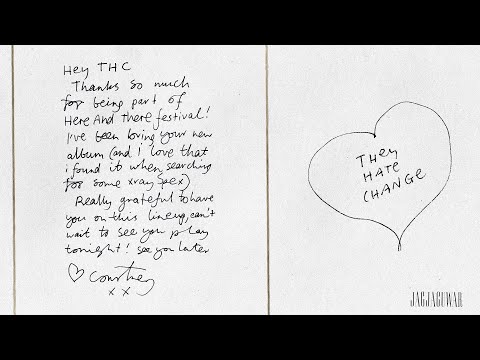 Hey THC
Thanks so much
for being part of
Here And There festival!
I've been loving your new
album (and I love that
i found it when searching
for some xray spex)
Really grateful to have
you on this lineup, can't
wait to see you play
tonight! see you later
♡ Courtney
x x
THEY
HATE
CHANGE
JAGJAGUWAR